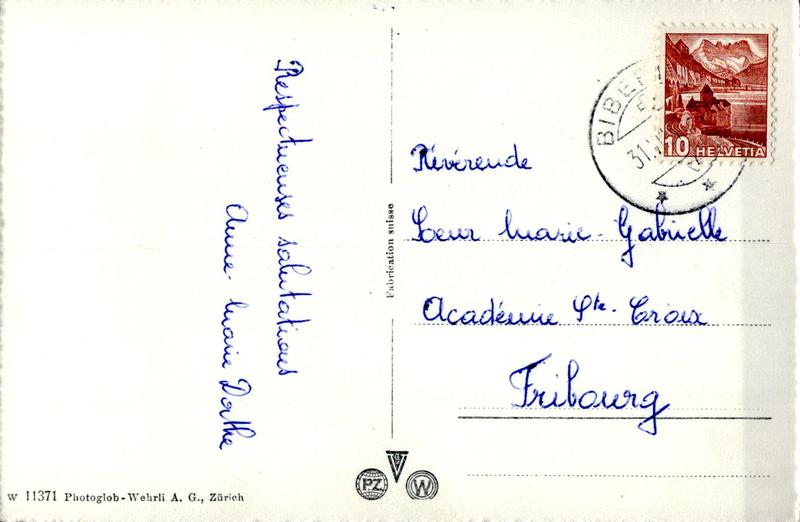 Respectueuses salutations
Anne-Marie Dorthe
Fabrication suisse
W 11371 Photoglob-Wehrli A. G., Zürich
PZ
W
10 HELVETIA
31.
Révérende
Soeur Marie-Gabrielle
Académie Ste-Croix
Fribourg